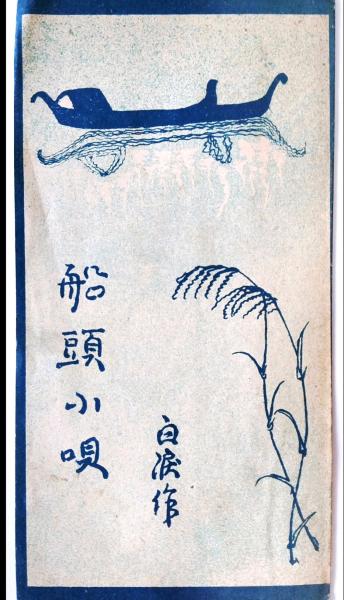 船頭小唄
白涙作